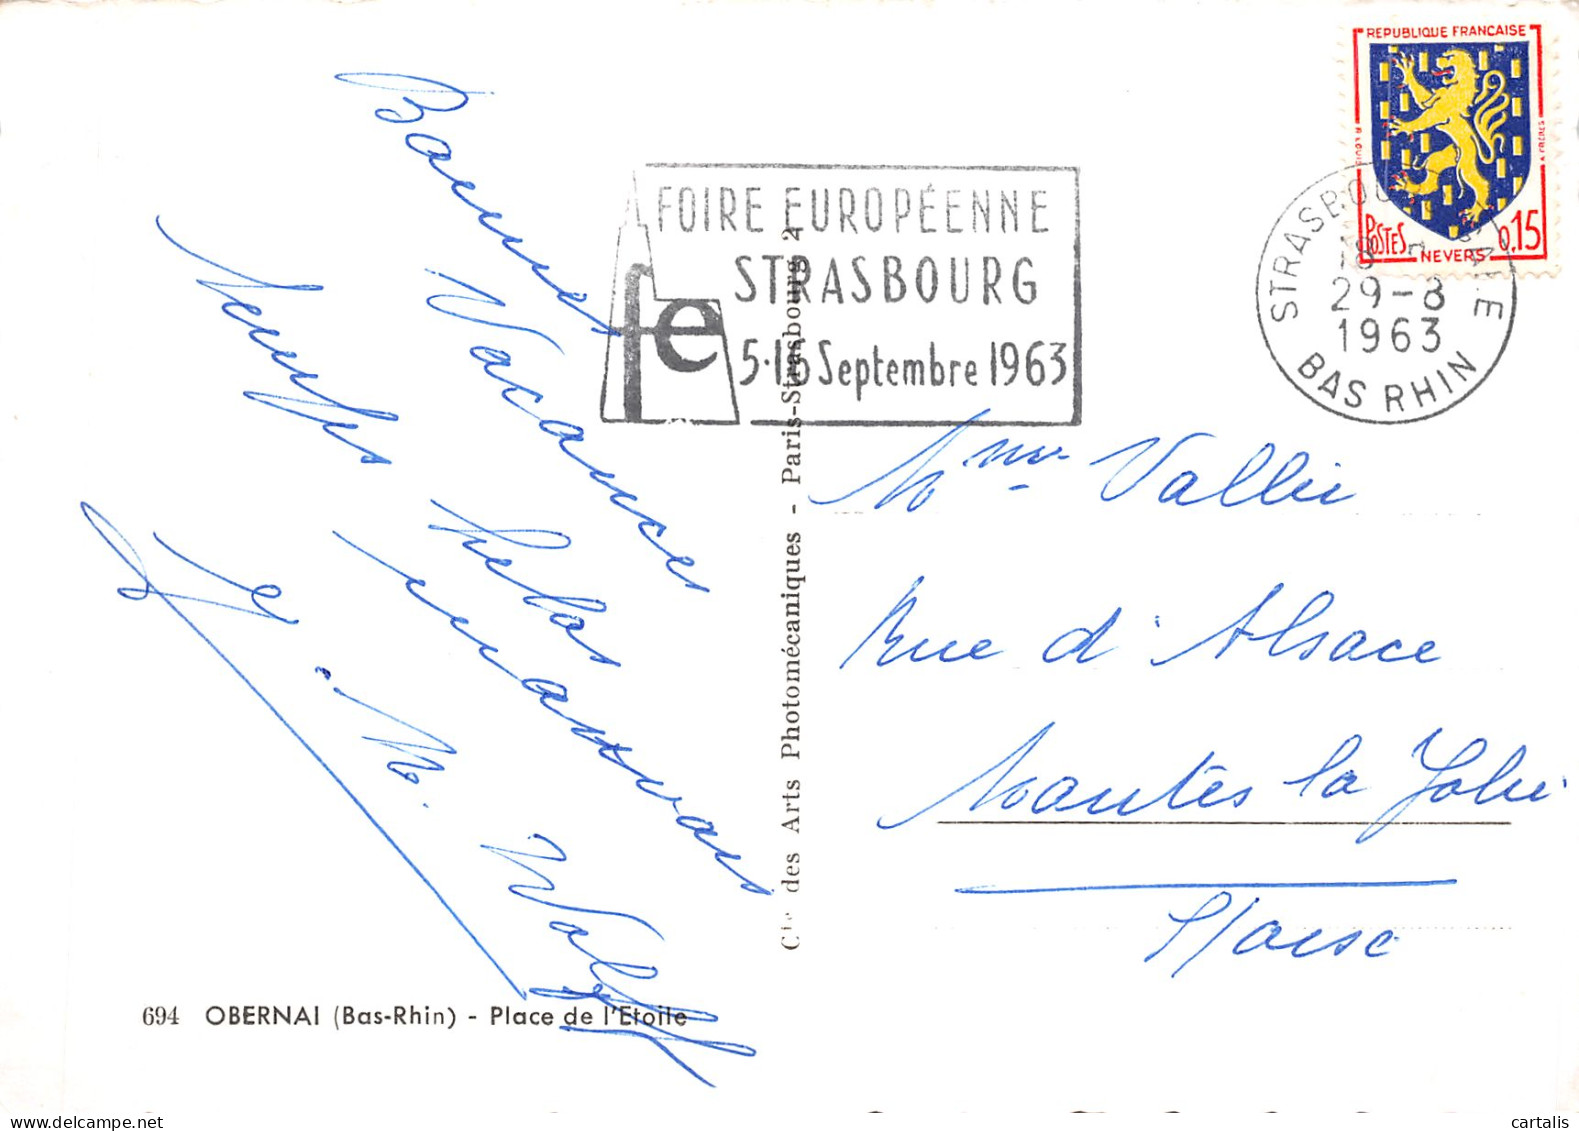 Bonnes
Vacances
Temps helas
mauvais
M. Wolff
694 OBERNAI (Bas-Rhin) - Place de l'Etoile
Cie des Arts Photomécaniques - Paris-Strasbourg 2
FOIRE EUROPÉENNE
STRASBOURG
fe
5-16 Septembre 1963
REPUBLIQUE FRANCAISE
POSTES
NEVERS
0,15
STRASBOURG GARE
18 H
29-8
1963
BAS RHIN
Mme Vallie
Rue d'Alsace
Mantes la Jolie
S/Oise
cartalis